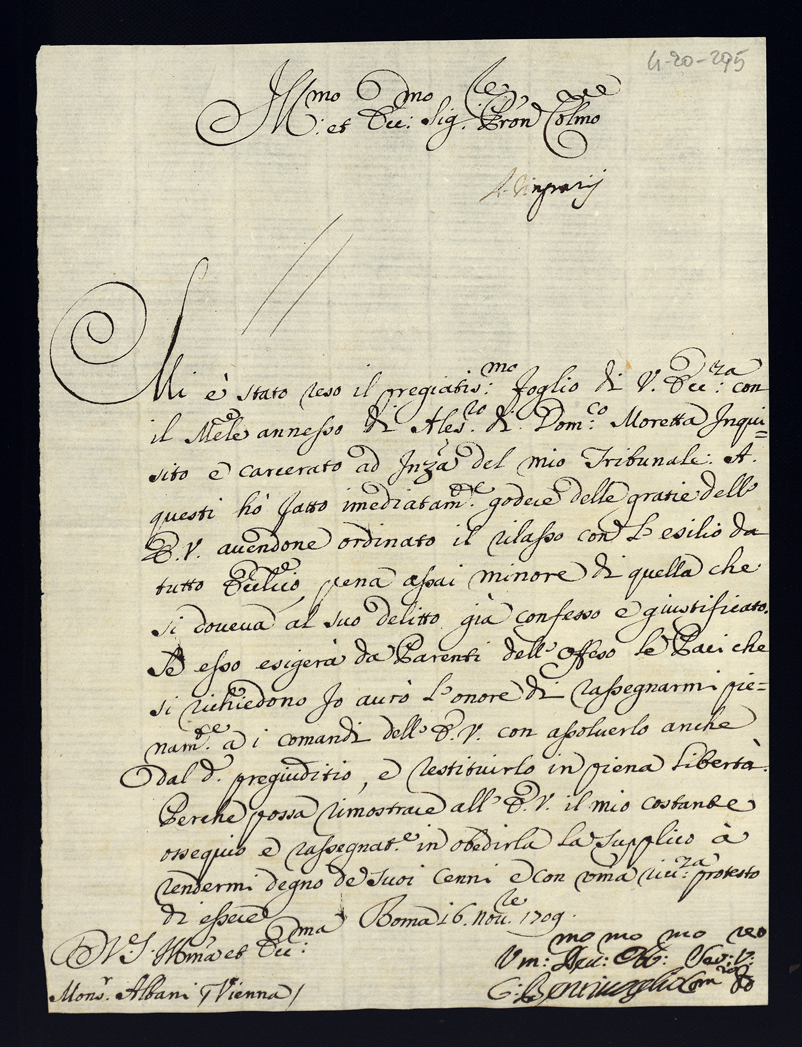 4-20-295
Ill.mo et Ecc.mo Sig.re Pron Colmo
Mi è stato reso il pregiatis:mo foglio di V. Ecc:za con
il Mẽle annesso di Ales.ro di Dom.co Moretta Inqui=
sito e carcerato ad Inza del mio Tribunale. A
questi hò fatto imediatam.te godere delle gratie dell'
E.V. avendone ordinato il rilasso con l'esilio da
tutto pena assai minore di quella che
si doveva al suo delitto già confesso e giustificato.
Se esso esigerà da Parenti dell'Offeso le Paci che
si richiedono Io avrò l'onore di rassegnarmi pie=
nam.te a i comandi dell'E.V. con assolverlo anche
dal d.o pregiuditio, e restituirlo in piena Libertà.
Perche possa rimostrare all'E.V. il mio costante
ossequio e rassegnat.e in obedirla La supplico à
rendermi degno de suoi cenni e con vma riu:za protesto
di essere Roma 16. Nov.re 1709.
V.S. Illma et Ecc:ma
Mons.r Albani / Vienna /
Vm: Dev: Obb: Ser: V:
mo mo mo re